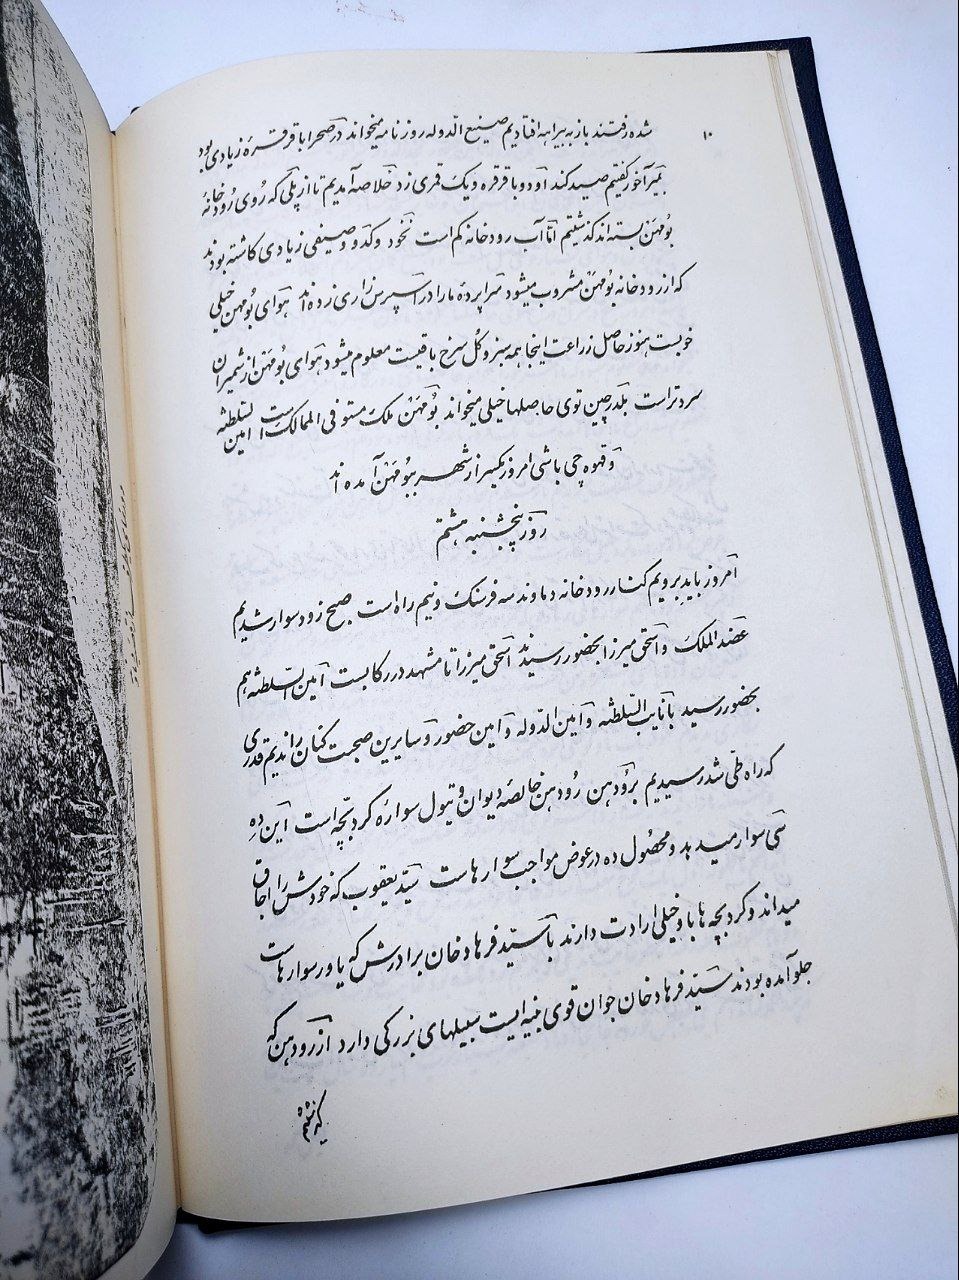 ۱۰
شده رفتند باز به بیراهه افتادیم صنیع الدوله روزنامه میخواند در صحرا باقرقره زیادی بود
بمیرآخور گفتیم صید کند او دو باقرقره و یک قمری زد خلاصه آمدیم تا از پلی که روی رودخانهٔ
بومهن بسته‌اند گذشتیم اما آب رودخانه کم است نخود و کدو و صیفی زیادی کاشته بودند
که از رودخانه بومهن مشروب میشود سراپرده ما را در اسپرس زاری زده‌اند هوای بومهن خیلی
خوبست هنوز حاصل زراعت اینجا همه سبز و گل سرخ باقیست معلوم میشود هوای بومهن از شمیران
سردتر است بلدرچین توی حاصلها خیلی میخواند بومهن ملک مستوفی الممالک است امین السلطنه
و قهوه چی باشی امروز یکسر از شهر ببومهن آمده‌اند
روز پنجشنبه هشتم
امروز باید برویم کنار رودخانه دماوند سه فرسنگ و نیم راه است صبح زود سوار شدیم
عضد الملک و اسحق میرزا بحضور رسیدند اسحق میرزا تا مشهد در رکابست امین السلطنه هم
بحضور رسید با نایب السلطنه و امین الدوله و امین حضور و سایرین صحبت کنان راندیم قدری
که راه طی شد رسیدیم برودهن رودهن خالصه دیوان و تیول سواره کرد بچه است این ده
سی سوار میدهد و محصول ده در عوض مواجب سوارهاست سید یعقوب که خودش را اجاق
میداند و کرد بچه‌ها باو خیلی ارادت دارند با سید فرهاد خان برادرش که یاور سوارهاست
جلو آمده بودند سید فرهاد خان جوان قوی بنیه ایست سبیلهای بزرگی دارد از رودهن که
گذشتیم